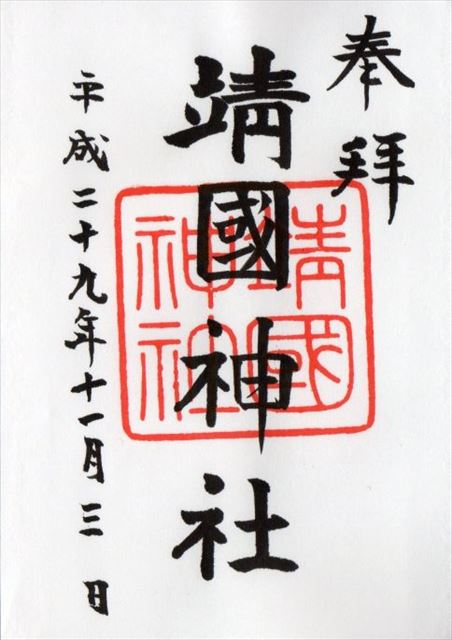 奉拝
靖國神社
靖國神社
平成二十九年十一月三日